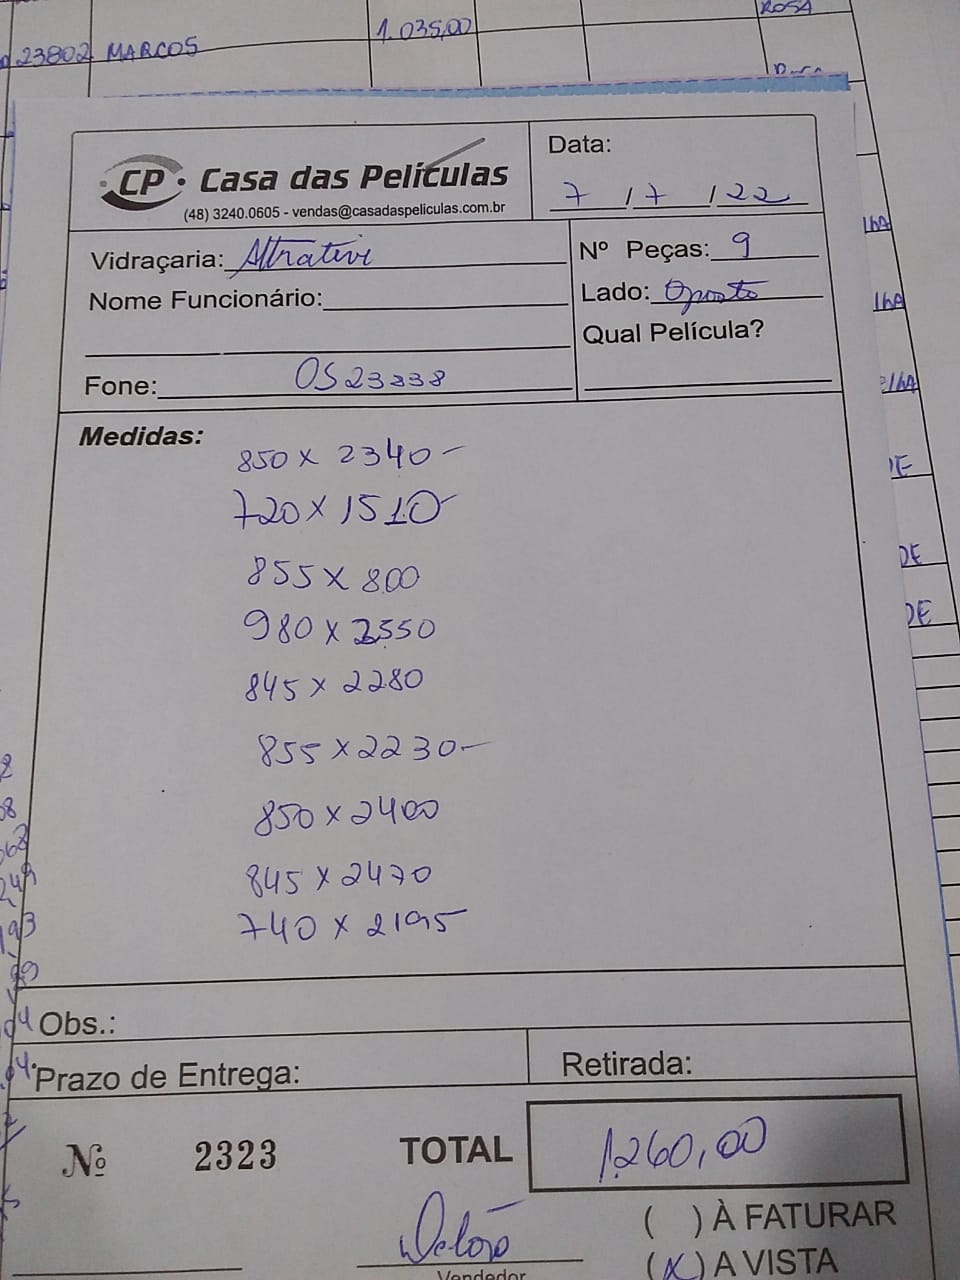 ROSA
23802 MARCOS 1.035,00
CP Casa das Películas
(48) 3240.0605 - vendas@casadaspeliculas.com.br
Data:
7 / 7 / 22
Vidraçaria: Attrative
Nº Peças: 9
Nome Funcionário:
Lado: Oposto
Qual Película?
Fone: OS 23838
Medidas:
850 x 2340 -
720 x 1510 -
855 x 800
980 x 2550
845 x 2280
855 x 2230 -
850 x 2400
845 x 2470
740 x 2195
Obs.:
Prazo de Entrega:
Retirada:
Nº 2323
TOTAL 1.260,00
( ) À FATURAR
(X) A VISTA
Vendedor
lhA
lhA
elhA
DE
DE
DE